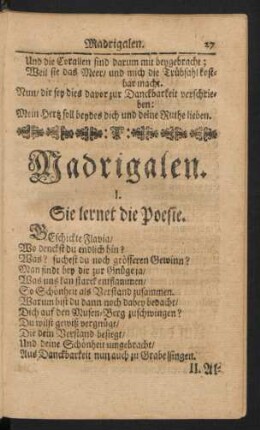 Madrigalen. 27
Und die Corallen sind darum mit beygebracht;
Weil sie das Meer/ und mich die Trübsahl kost-
bar macht.
Nun/ dir sey dies davor zur Danckbarkeit verschrie-
ben:
Mein Hertz soll beydes dich und deine Ruthe lieben.
Madrigalen.
I.
Sie lernet die Poesie.
BEschickte Flavia/
Wo denckst du endlich hin?
Was? suchest du noch grösseren Gewinn?
Man findt bey dir zur Gnüge ja/
Was uns kan starck entflammen/
So Schönheit als Verstand zusammen.
Warum bist du dann noch dabey bedacht/
Dich auf den Musen-Berg zuschwingen?
Du wilst gewiß vergnügt/
Die dein Verstand besiegt/
Und deine Schönheit umgebracht/
Aus Danckbarkeit nun auch zu Grabe singen.